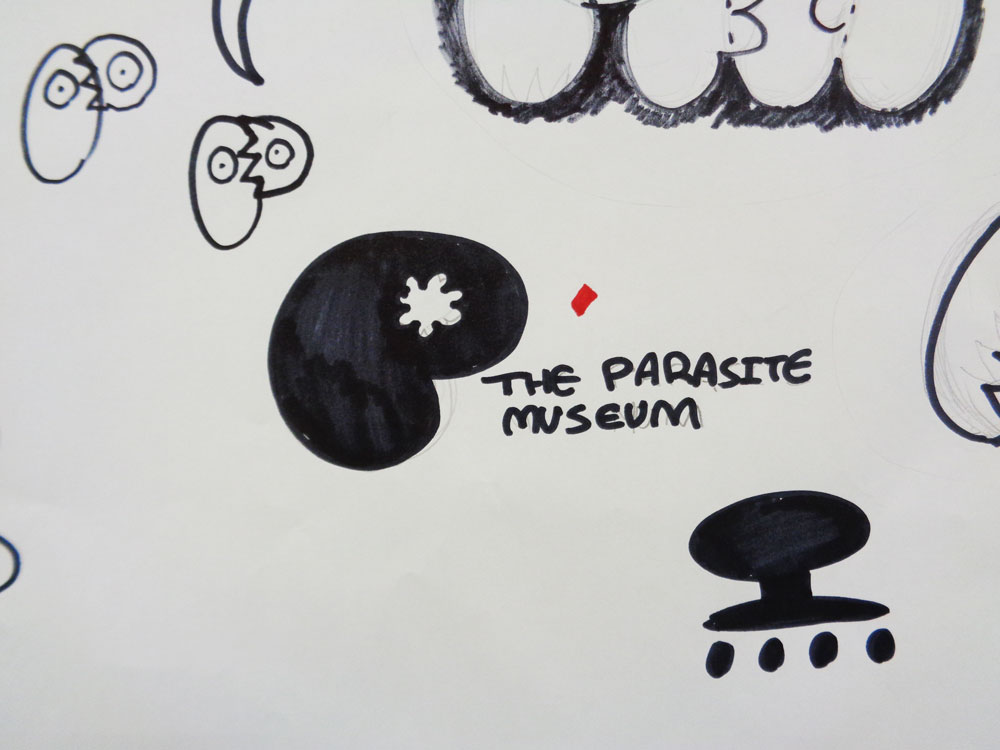 THE PARASITE
MUSEUM